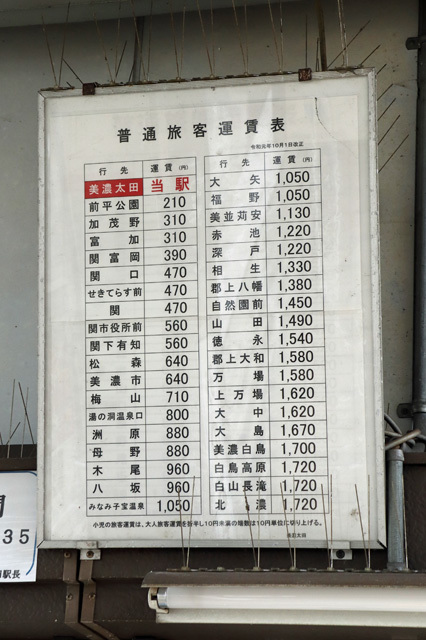 普通旅客運賃表
令和元年10月1日改正
行先 運賃(円)
美濃太田 当駅
前平公園 210
加茂野 310
富加 310
関富岡 390
関口 470
せきてらす前 470
関 470
関市役所前 560
関下有知 560
松森 640
美濃市 640
梅山 710
湯の洞温泉口 800
洲原 880
母野 880
木尾 960
八坂 960
みなみ子宝温泉 1,050
行先 運賃(円)
大矢 1,050
福野 1,050
美並苅安 1,130
赤池 1,220
深戸 1,220
相生 1,330
郡上八幡 1,380
自然園前 1,450
山田 1,490
徳永 1,540
郡上大和 1,580
万場 1,580
上万場 1,620
大中 1,620
大島 1,670
美濃白鳥 1,700
白鳥高原 1,720
白山長滝 1,720
北濃 1,720
小児の旅客運賃は、大人旅客運賃を折半し10円未満の端数は10円単位に切り上げる。
35
駅長